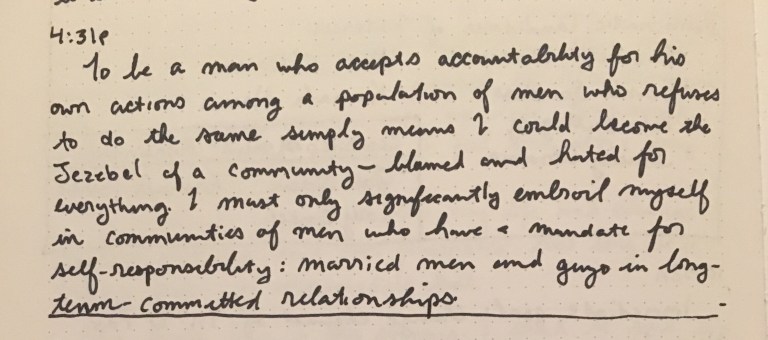 4:31p
To be a man who accepts accountability for his
own actions among a population of men who refuses
to do the same simply means I could become the
Jezebel of a community - blamed and hated for
everything. I must only significantly embroil myself
in communities of men who have a mandate for
self-responsibility: married men and guys in long-
term committed relationships.